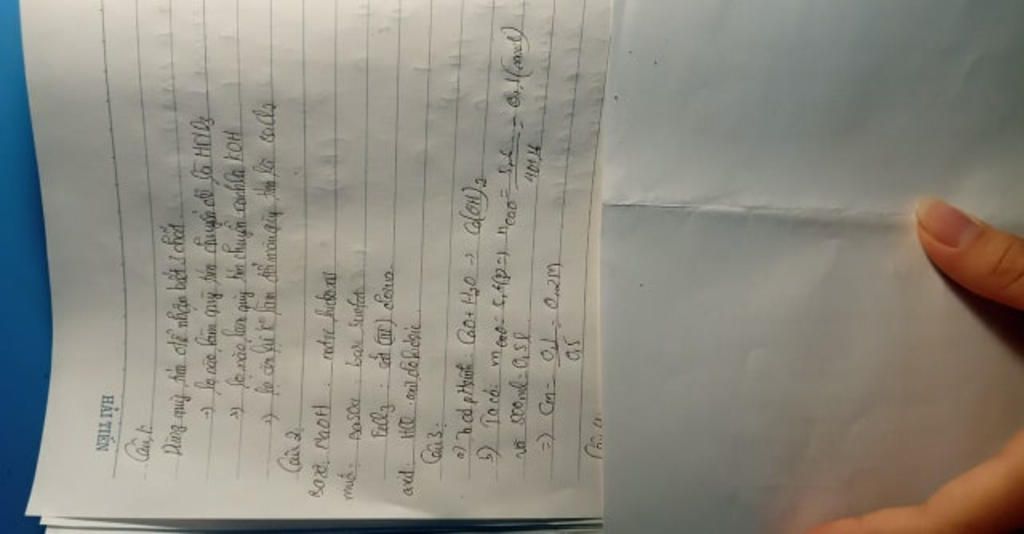 HẢI TIẾN
Câu 1:
Dùng quỳ tím để nhận biết 3 chất
-> lọ nào làm quỳ tím chuyển đỏ là HNO3
-> lọ nào làm quỳ tím chuyển xanh là KOH
-> lọ còn lại k° làm đổi màu quỳ tím là CaCl2
Câu 2:
Bazơ: NaOH : natri hidroxit
muối: BaSO4 : bari sunfat
FeCl3 : sắt (III) clorua
axit: HCl : axit clohidric
Câu 3:
a) CaO + H2O -> Ca(OH)2
b) Ta có: mCaO = 5,6(g) => nCaO = 5,6 / = 0,1 (mol)
500ml = 0,5l
=> CM = 0,1/0,5 = 0,2M